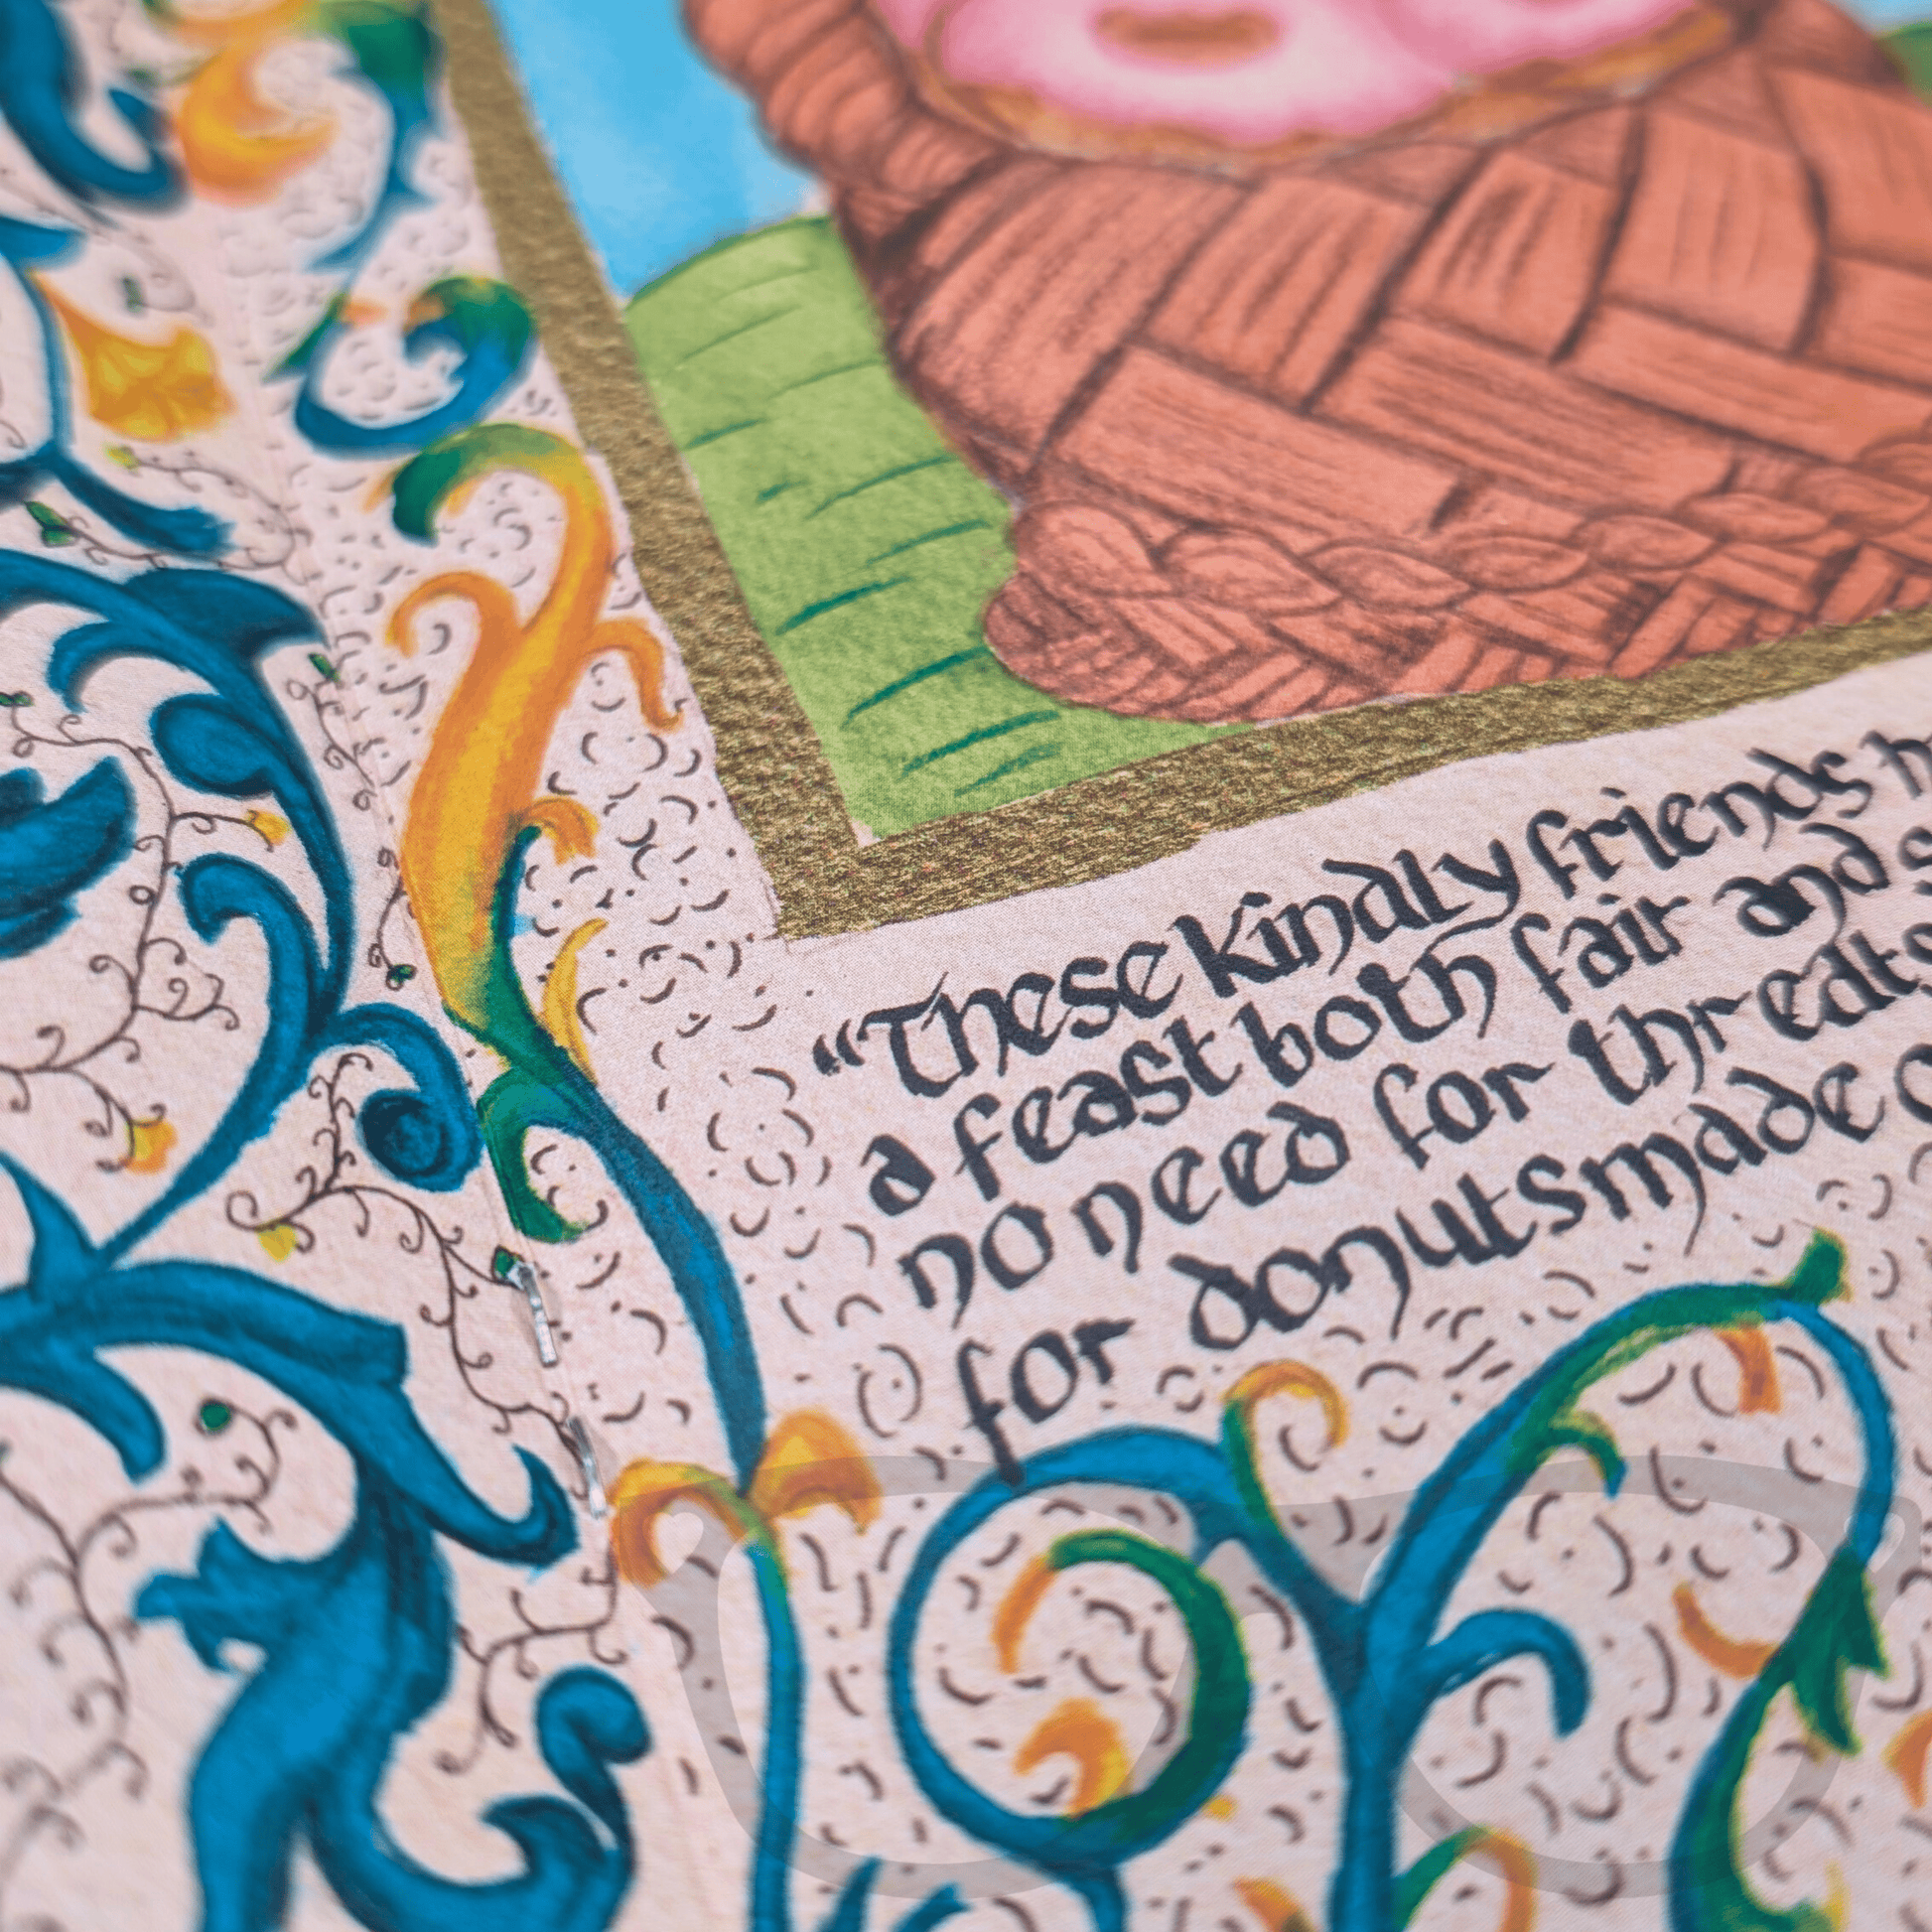 “These kindly friends
a feast both fair and
no need for
for donuts made